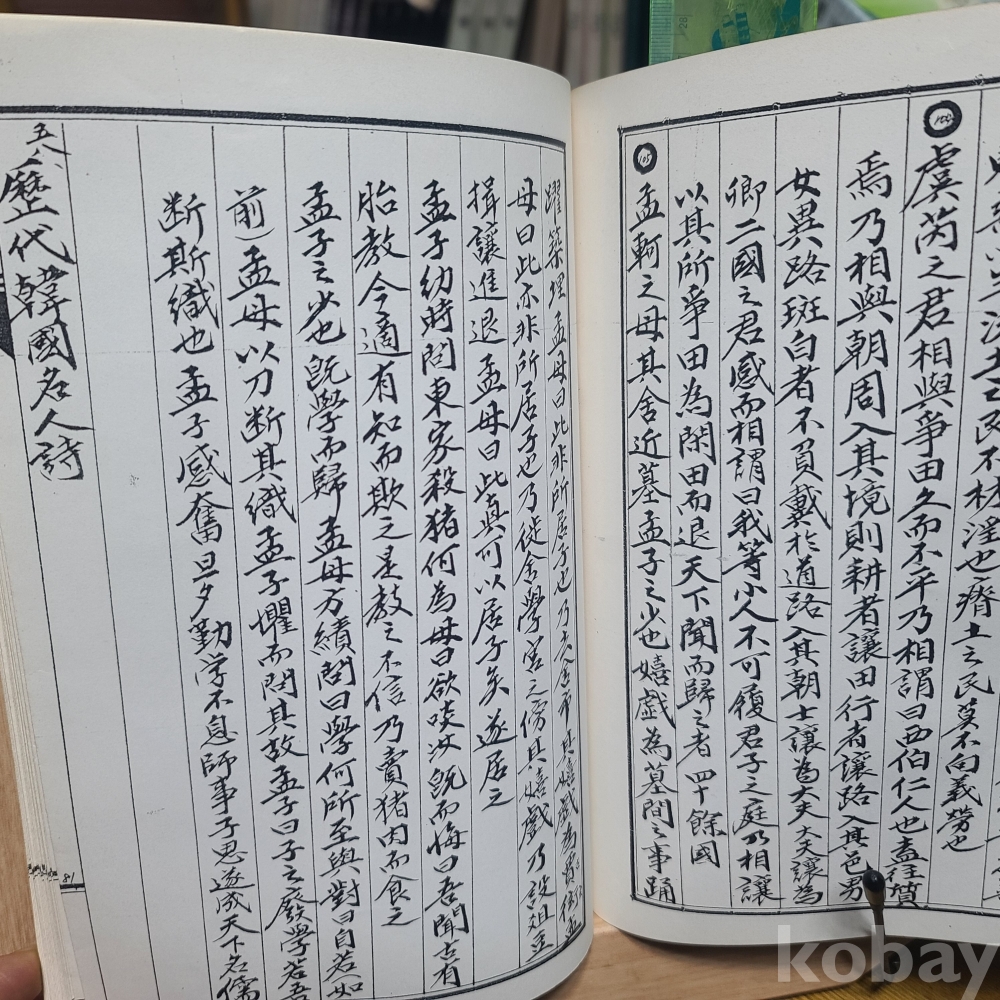 沃土之民不材淫也瘠土之民莫不向義勞也
虞芮之君相與爭田久而不平乃相謂曰西伯仁人也盍往質
焉乃相與朝周入其境則耕者讓田行者讓路入其邑男
女異路斑白者不負戴於道路入其朝士讓為大夫大夫讓為
卿二國之君感而相謂曰我等小人不可履君子之庭乃相讓
以其所爭田為閑田而退天下聞而歸之者四十餘國
105
孟軻之母其舍近墓孟子之少也嬉戲為墓間之事踊
躍築埋孟母曰此非所居子也乃去舍市其嬉戲為賈衒孟
母曰此亦非所居子也乃徙舍學宮之傍其嬉戲乃設俎豆
揖讓進退孟母曰此真可以居子矣遂居之
孟子幼時問東家殺猪何為母曰欲啖汝既而悔曰吾聞古有
胎教今適有知而欺之是教之不信乃賣猪肉而食之
孟子之少也既學而歸孟母方績問曰學何所至與對曰自若如
前孟母以刀断其織孟子懼而問其故孟子曰子之廢學若吾
断斯織也孟子感奮旦夕勤学不息師事子思遂成天下名儒
五八、歷代韓國名人詩
81
kobay